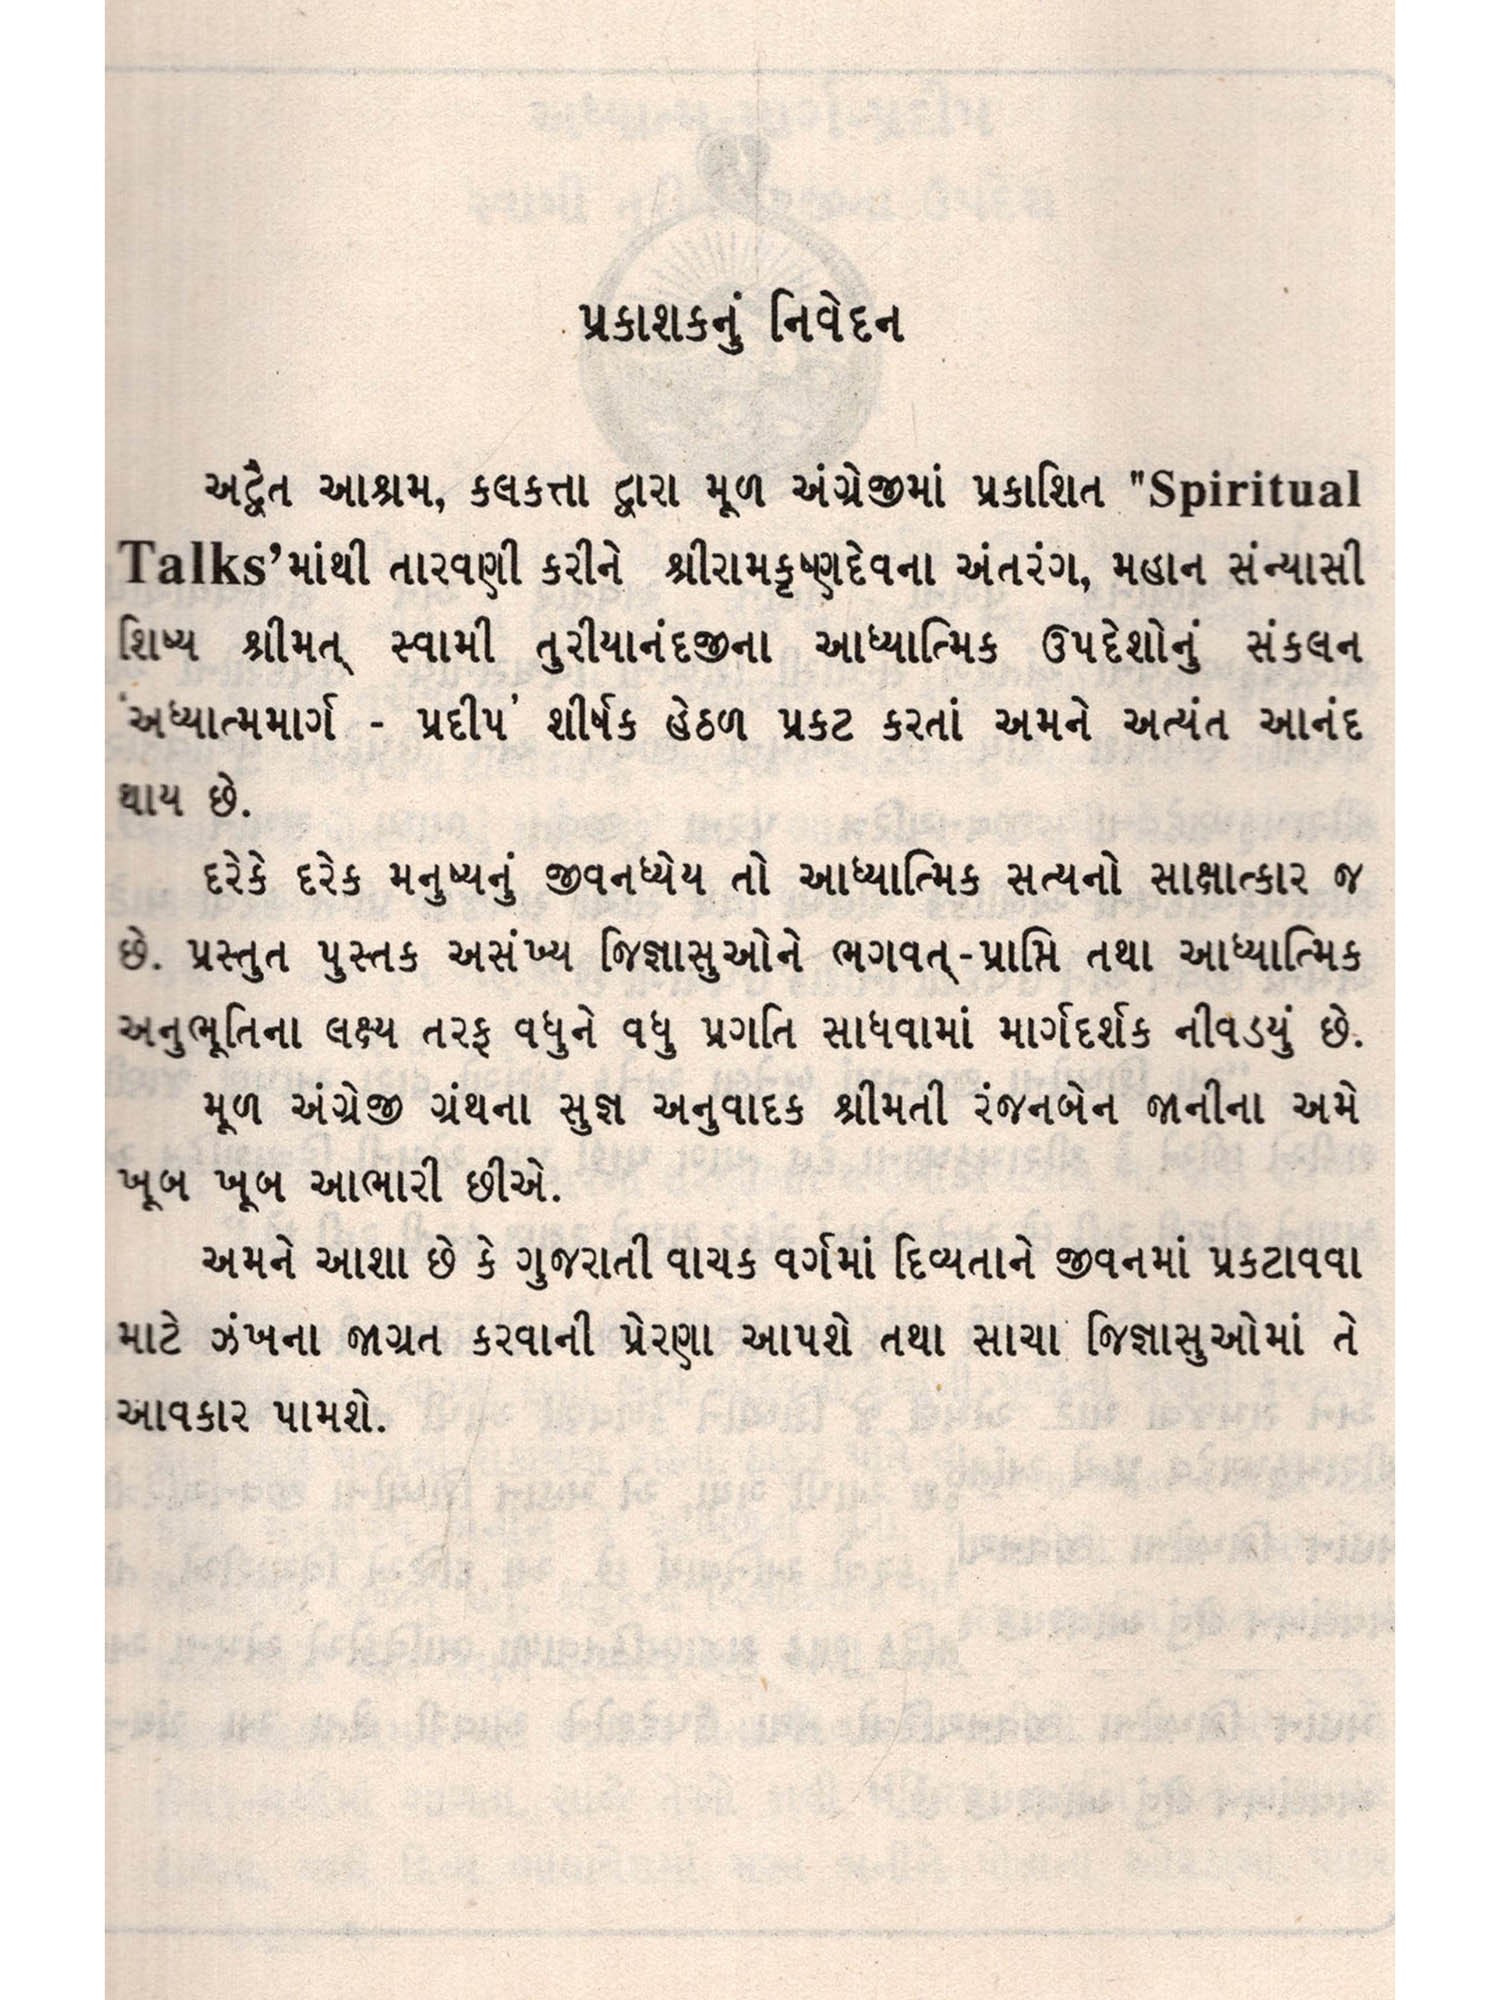 પ્રકાશકનું નિવેદન
અદ્વૈત આશ્રમ, કલકત્તા દ્વારા મૂળ અંગ્રેજીમાં પ્રકાશિત "Spiritual
Talks'માંથી તારવણી કરીને શ્રીરામકૃષ્ણદેવના અંતરંગ, મહાન સંન્યાસી
શિષ્ય શ્રીમત્ સ્વામી તુરીયાનંદજીના આધ્યાત્મિક ઉપદેશોનું સંકલન
'અધ્યાત્મમાર્ગ - પ્રદીપ' શીર્ષક હેઠળ પ્રકટ કરતાં અમને અત્યંત આનંદ
થાય છે.
દરેકે દરેક મનુષ્યનું જીવનધ્યેય તો આધ્યાત્મિક સત્યનો સાક્ષાત્કાર જ
છે. પ્રસ્તુત પુસ્તક અસંખ્ય જિજ્ઞાસુઓને ભગવત્-પ્રાપ્તિ તથા આધ્યાત્મિક
અનુભૂતિના લક્ષ્ય તરફ વધુને વધુ પ્રગતિ સાધવામાં માર્ગદર્શક નીવડયું છે.
મૂળ અંગ્રેજી ગ્રંથના સુજ્ઞ અનુવાદક શ્રીમતી રંજનબેન જાનીના અમે
ખૂબ ખૂબ આભારી છીએ.
અમને આશા છે કે ગુજરાતી વાચક વર્ગમાં દિવ્યતાને જીવનમાં પ્રકટાવવા
માટે ઝંખના જાગ્રત કરવાની પ્રેરણા આપશે તથા સાચા જિજ્ઞાસુઓમાં તે
આવકાર પામશે.